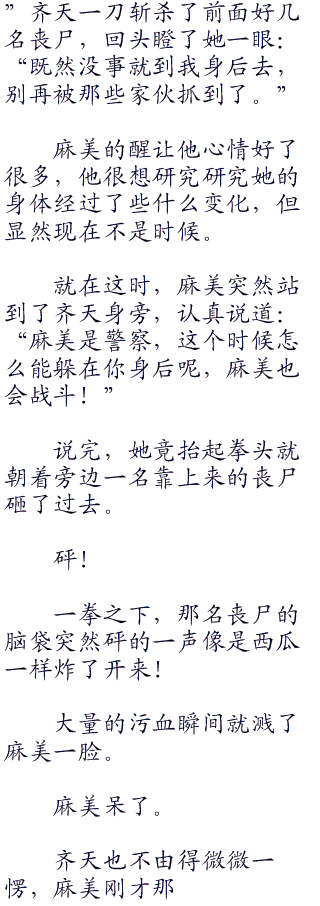 ”齐天一刀斩杀了前面好几
名丧尸，回头瞪了她一眼：
“既然没事就到我身后去，
别再被那些家伙抓到了。”
麻美的醒让他心情好了
很多，他很想研究研究她的
身体经过了些什么变化，但
显然现在不是时候。
就在这时，麻美突然站
到了齐天身旁，认真说道：
“麻美是警察，这个时候怎
么能躲在你身后呢，麻美也
会战斗！”
说完，她竟抬起拳头就
朝着旁边一名靠上来的丧尸
砸了过去。
砰！
一拳之下，那名丧尸的
脑袋突然砰的一声像是西瓜
一样炸了开来！
大量的污血瞬间就溅了
麻美一脸。
麻美呆了。
齐天也不由得微微一
愣，麻美刚才那